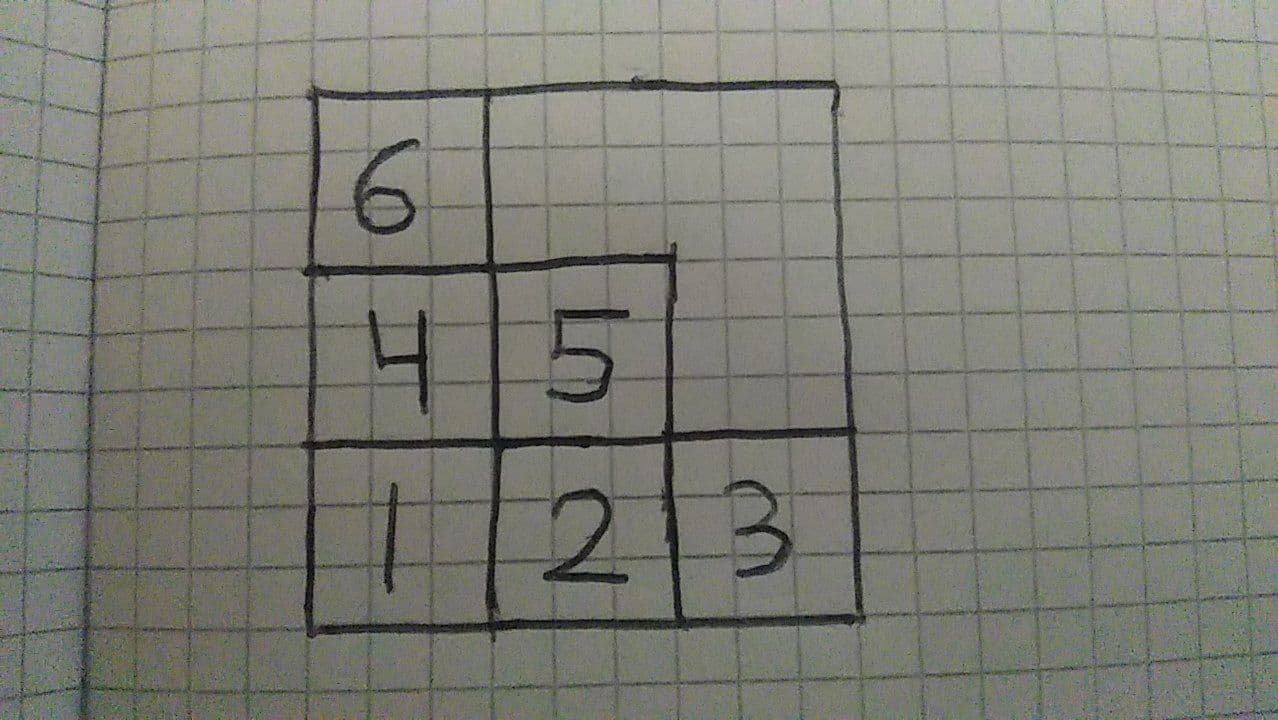 6
4 5
1 2 3